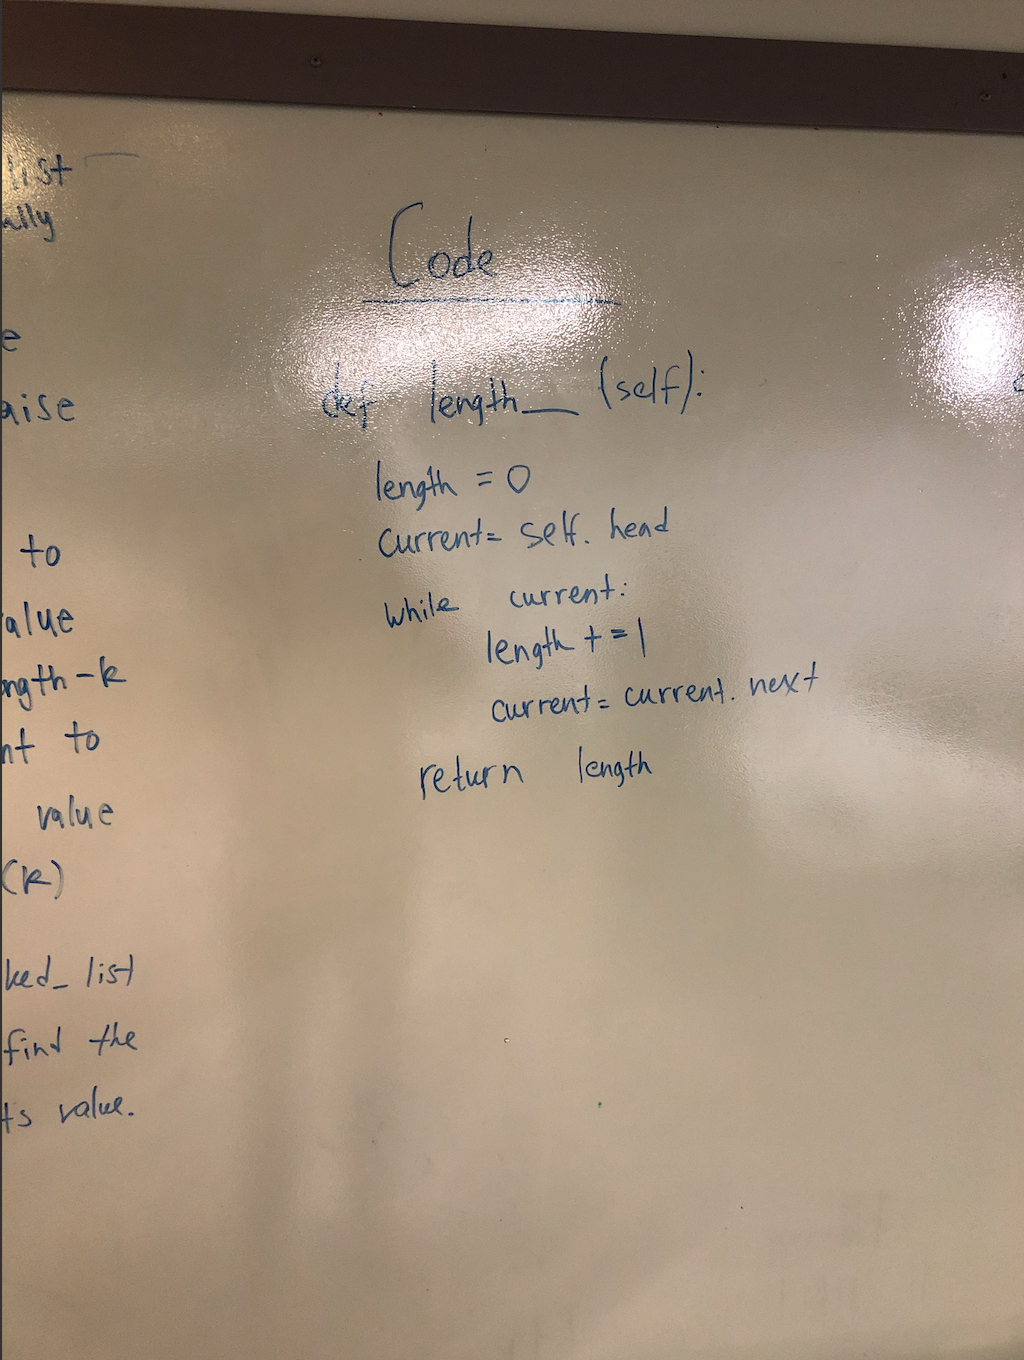 list
ally
e
aise
to
alue
ngth-k
nt to
value
(k)
ked_list
find the
ts value.
Code
def length__ (self):
length = 0
current = self.head
while current:
length += 1
current = current.next
return length